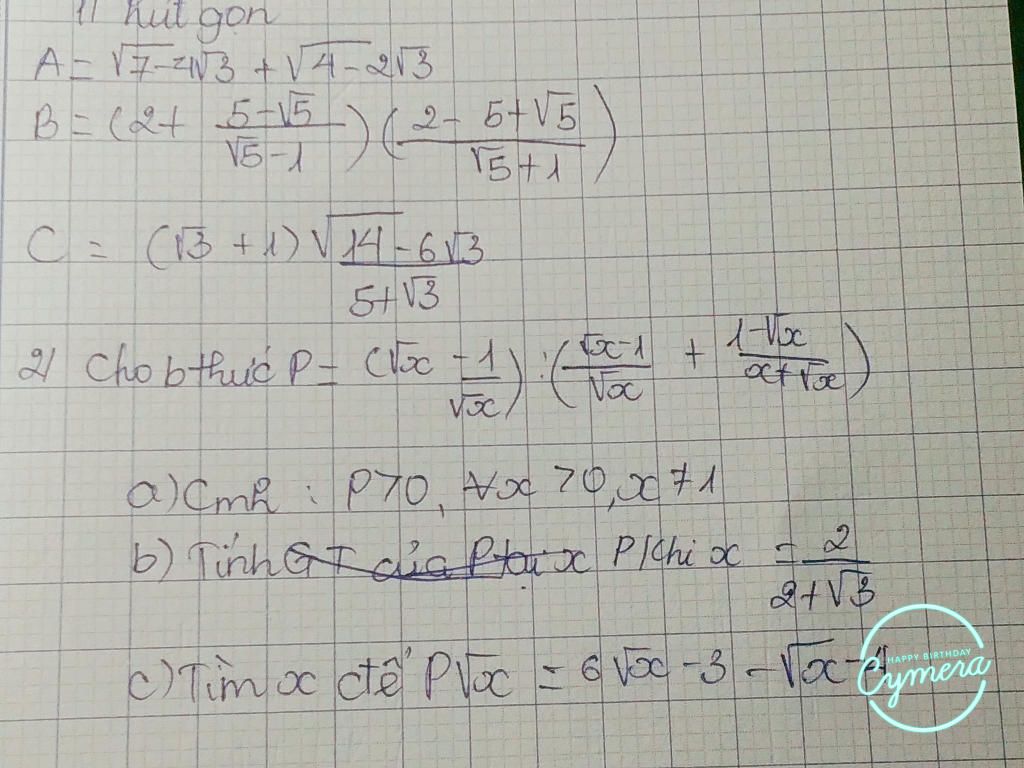 1) Rút gọn
A = √7-4√3 + √4-2√3
B = (2+ (5-√5)/(√5-1)) ((2- 5+√5)/(√5+1))
C = (√3 +1) √(14-6√3)/(5+√3)
2) Cho b thức P = (√x - 1/√x) : ((√x-1)/√x + (1-√x)/(x+√x))
a) CmR : P>0, ∀x >0, x ≠ 1
b) Tính GT của P tại x P khi x = 2/(2+√3)
c) Tìm x để P√x = 6√x - 3 - √x-4
HAPPY BIRTHDAY
Cymera